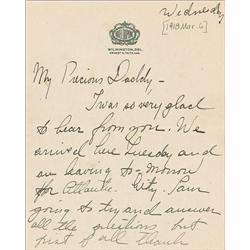 Wednesday
[1918 Mar. 6]
WILMINGTON, DEL.
My Precious Daddy -
I was so very glad
to hear from you. We
arrived here Tuesday and
are leaving to-morrow
for Atlantic City. I am
going to try and answer
all the questions but
first of all thank